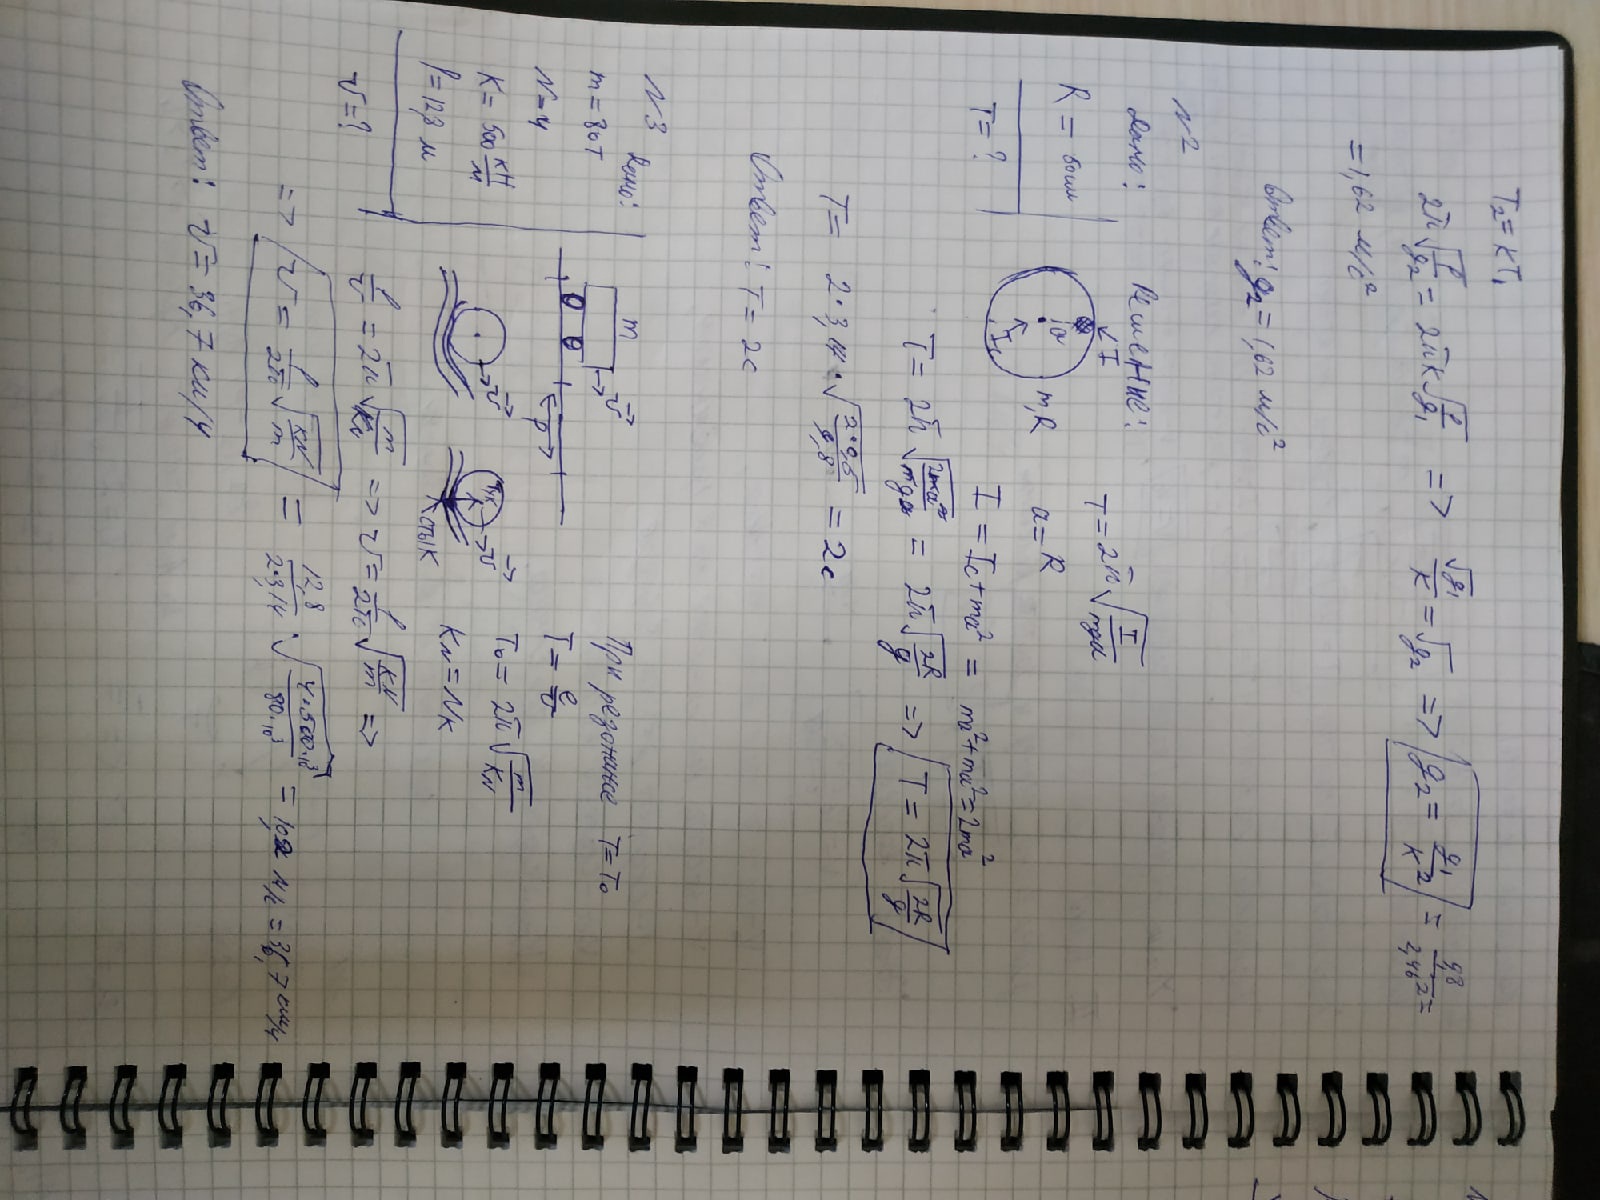 T₂ = kT₁
2π√(l/g₂) = 2πk√(l/g₁) => √g₁/k = √g₂ => g₂ = g₁/k² = 9,8/2,46² =
= 1,62 м/с²
Ответ: g₂ = 1,62 м/с²
№2
Дано: Решение:
I
T = 2π√(I/mga)
R = 50см
a
m, R
a = R
I꜀
T = ?
I = Ic + ma² = ma² + ma² = 2ma²
T = 2π√(2ma²/mga) = 2π√(2R/g) => T = 2π√(2R/g)
T = 2·3,14·√(2·0,5/9,8) = 2с
Ответ: T = 2с
№3
Дано:
m = 80т
N = 4
K = 500 кН/м
l = 12,8 м
v = ?
m v
l
v T,K v
стык
При резонансе T = T₀
T = l/v
T₀ = 2π√(m/K_N)
K_N = NK
l/v = 2π√(m/K_N) => v = l/2π √(KN/m) =>
=> v = l/2π √(KN/m) = 12,8/2·3,14 · √(4·500·10³/80·10³) = 10,2 м/с = 36,7 км/ч
Ответ: v = 36,7 км/ч